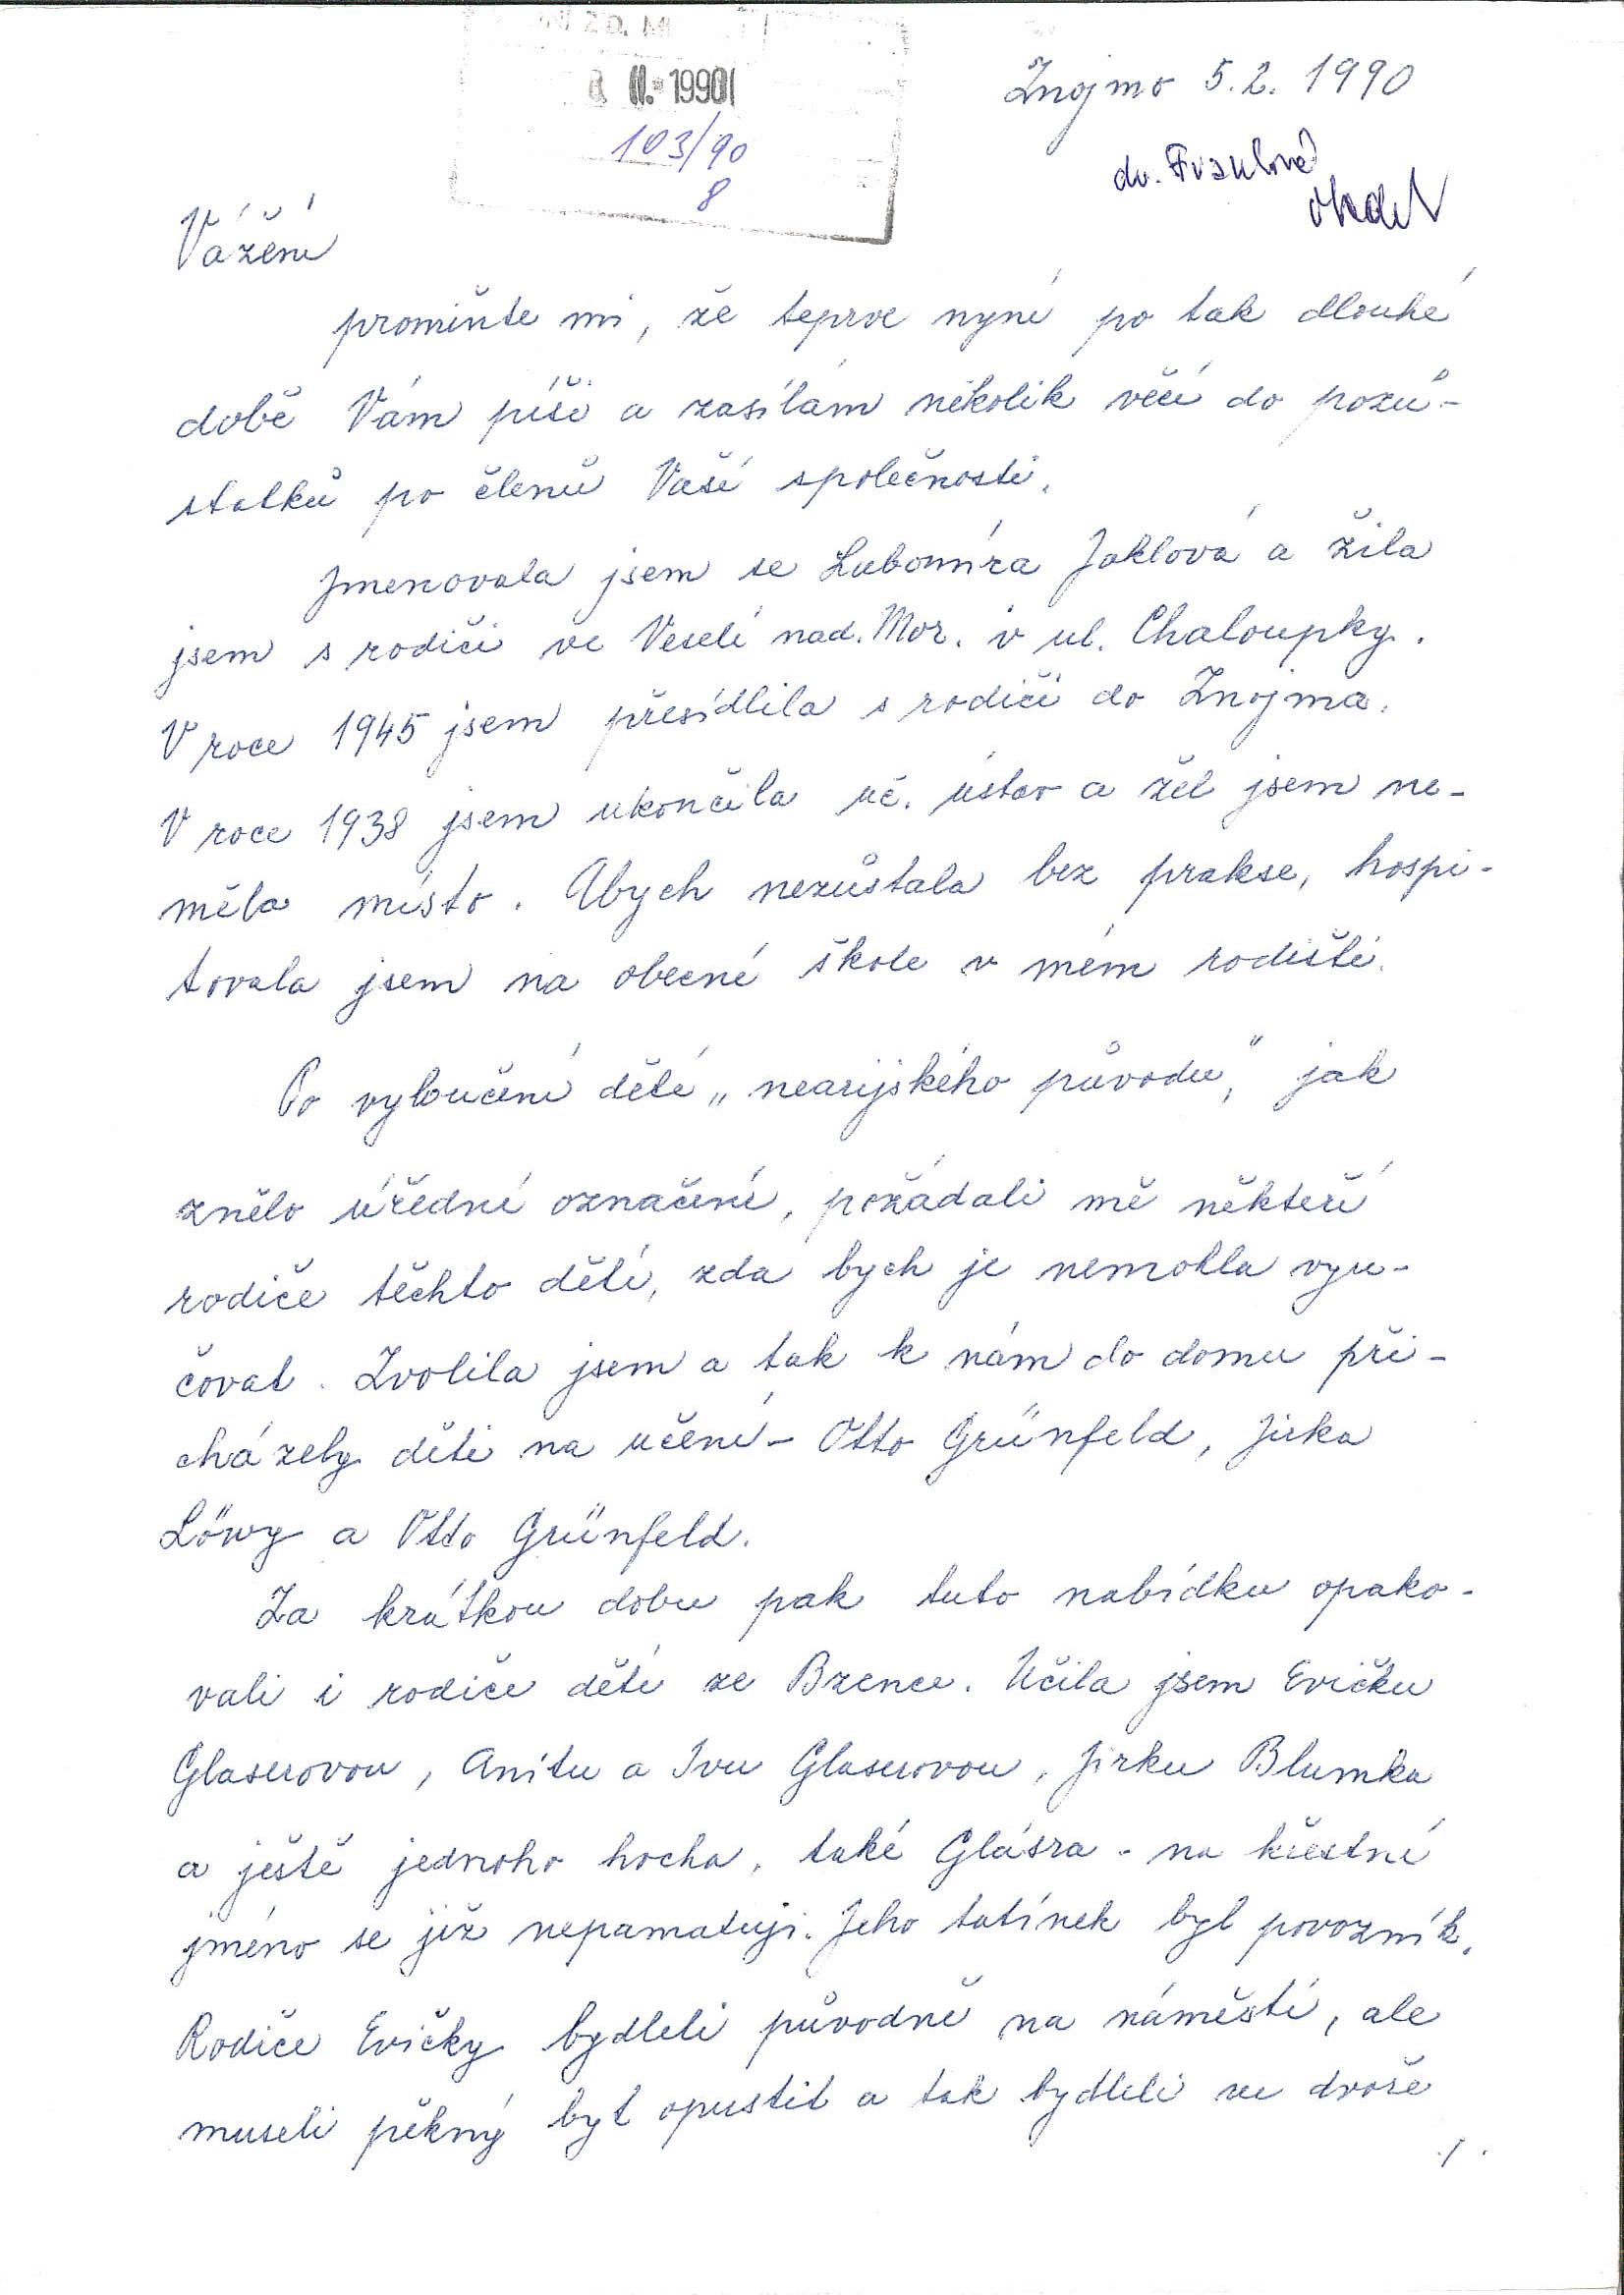 II. 1990
Znojmo 5.2. 1990
103/90
8
dr. Franklové
Vážení
promiňte mi, že teprve nyní po tak dlouhé
době Vám píši a zasílám několik věcí do pozů-
statků po členů Vaší společnosti.
Jmenovala jsem se Lubomíra Jaklová a žila
jsem s rodiči ve Veselí nad. Mor. v ul. Chaloupky.
V roce 1945 jsem přesídlila s rodiči do Znojma.
V roce 1938 jsem ukončila uč. ústav a žel jsem ne-
měla místo. Abych nezůstala bez prakse, hospi-
tovala jsem na obecné škole v mém rodišti.
Po vyloučení dětí „nearijského původu", jak
znělo úřední označení, požádali mě někteří
rodiče těchto dětí, zda bych je nemohla vyu-
čovat. Zvolila jsem a tak k nám do domu při-
cházely děti na učení - Otto Grünfeld, Jirka
Löwy a Otto Grünfeld.
Za krátkou dobu pak tuto nabídku opako-
vali i rodiče dětí ze Bzence. Učila jsem Evičku
Glaserovou, Anitu a Ivu Glaserovou, Jirku Blumka
a ještě jednoho hocha, také Glásra - na křestní
jméno se již nepamatuji. Jeho tatínek byl povozník.
Rodiče Evičky bydleli původně na náměstí, ale
museli pěkný byt opustit a tak bydleli ve dvoře
./.